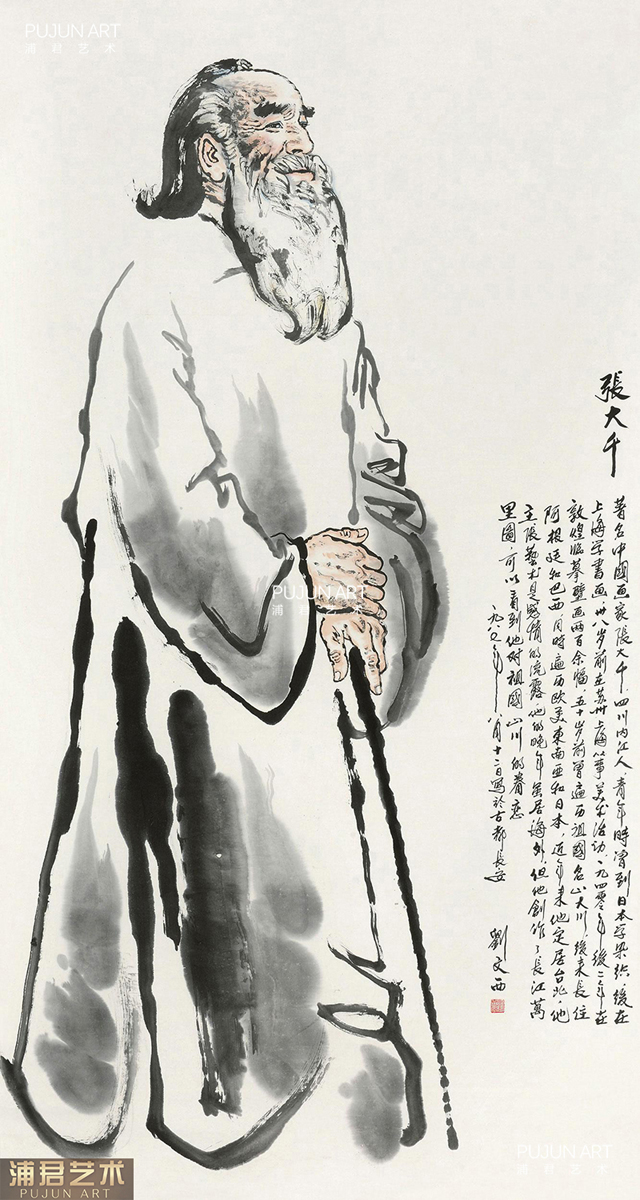 PUJUN ART
浦君艺术
張大千
著名中國画家張大千,四川内江人,青年時曾到日本学染织,後在
上海学書画,卅八岁前在苏州上海从事美术活动,一九四零年後二年在
敦煌临摹壁画两百余幅,五十岁前曾遍历祖國名山大川,後来長住
阿根廷和巴西,同時遍历欧美東南亚和日本,近年来他定居台北,他
主張艺术是感情的流露,他的晚年虽居海外,但他創作了長江萬
里國,可以看到他对祖國山川的眷恋
一九八〇年八月十二日寫於古都長安
劉文西
PUJUN ART
浦君艺术
浦君艺术
PUJUN ART
PUJUN ART
浦君艺术